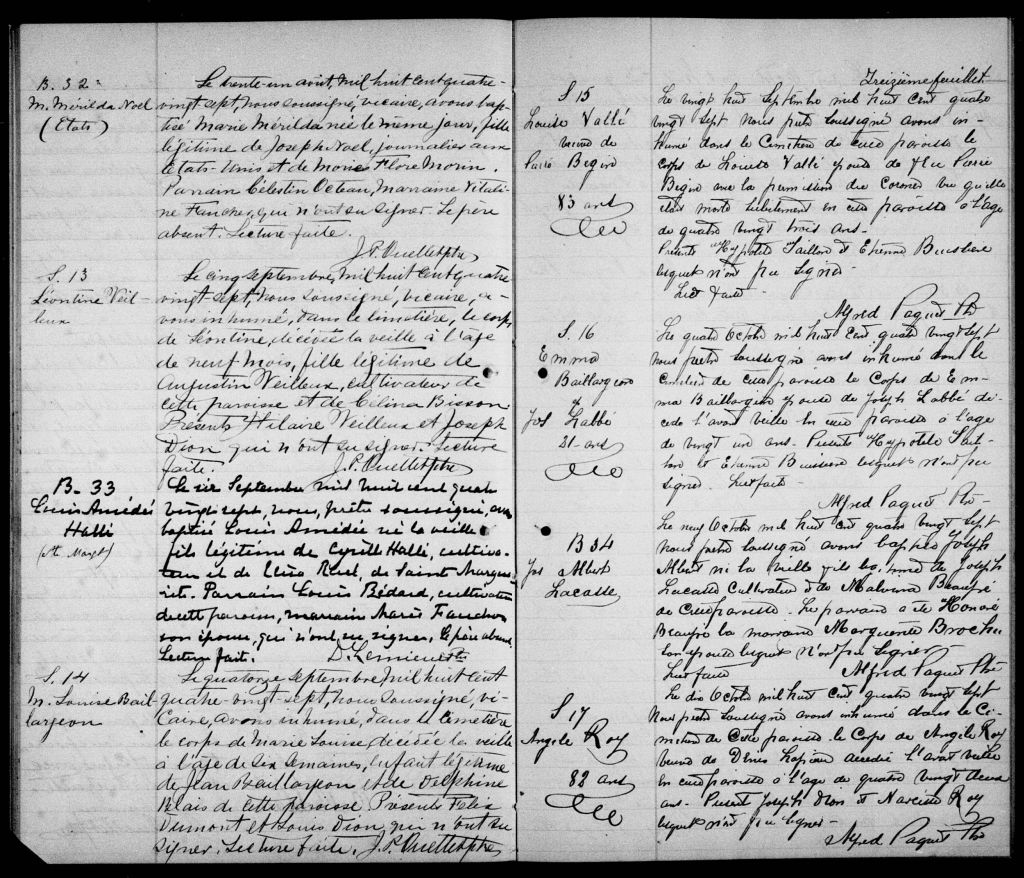 B. 32
M. Mérilda Noel
(Etats)
Le trente-un août, mil huit cent quatre-
vingt sept, nous soussigné, vicaire, avons bap-
tisé Marie Mérilda née le même jour, fille
légitime de Joseph Noel, journalier aux
Etats-Unis et de Marie Flore Morin.
Parrain Célestin Octeau, Marraine Vitali-
ne Faucher, qui n'ont su signer. Le père
absent. Lecture faite.
J. P. Ouellet ptre
S. 13
Léontine Veil-
leux
Le cinq septembre, mil huit cent quatre-
vingt sept, nous soussigné, vicaire, a-
vons inhumé, dans le cimetière, le corps
de Léontine, décédée la veille à l'age
de neuf mois, fille légitime de
Augustin Veilleux, cultivateur de
cette paroisse et de Célina Bisson
Présents Hilaire Veilleux et Joseph
Dion qui n'ont su signer. Lecture
faite.
J. P. Ouellet ptre
B. 33
Louis Amédée
Hallé
(Ste Margt)
Le six Septembre mil huit cent quatre
vingt sept, nous, prêtre soussigné, avons
baptisé Louis Amédée né la veille
fils légitime de Cyrille Hallé, cultiva-
teur et de Ruel, de Sainte Margue-
rite. Parrain Louis Bédard, cultivateur
de cette paroisse, marraine Marie Faucher
son épouse, qui n'ont su signer, le père absent
Lecture faite.
D. Lemieux Ptre
S. 14
M. Louise Bail-
largeon
Le quatorze septembre, mil huit cent
quatre-vingt-sept, nous soussigné, vi-
caire, avons inhumé, dans le cimetière
le corps de Marie Louise décédée la veille
à l'age de six semaines, enfant légitime
de Jean Baillargeon et de Delphine
Blais de cette paroisse Présents Félix
Dumont et Louis Dion qui n'ont su
signer. Lecture faite. J. P. Ouellet ptre
Treizième feuillet
S 15
Louise Vallé
veuve de
Pierre Begin
83 ans
Le vingt huit Septembre mil huit cent quatre
vingt sept nous prêtre soussigné avons in-
humé dans le Cimetière de cette paroisse le
corps de Louise Vallé épouse de feu Pierre
Begin avec la permission du Coroner vu qu'elle
était morte subitement en cette paroisse à l'age
de quatre vingt trois ans-
Présents Hypolite Taillon et Etienne Bussiere
lesquels n'ont pu signer-
Lect faite
Alfred Paquet Ptr
S. 16
Emma
Baillargeon
Jos Labbé
21 ans
Le quatre Octobre mil huit cent quatre vingt sept
nous prêtre soussigné avons inhumé dans le
cimetière de cette paroisse le Corps de Em-
ma Baillargeon épouse de Joseph Labbé dé-
cedé l'avant veille en cette paroisse à l'age
de vingt un ans. Présents Hypolite Tail-
lon et Etienne Bussiere lesquels n'ont pu
signer. Lect faite -
Alfred Paquet Ptr-
B 34
Jos Albert
Lacasse
Le neuf Octobre mil huit cent quatre vingt sept
nous prêtre soussigné avons baptisé Joseph
Albert né la veille fils leg. time de Joseph
Lacasse Cultivateur et de Malvina Beaupré
de cette paroisse. Le parrain a été Honoré
Beaupré la marraine Marguerite Brochu
son épouse lesquels n'ont pu signer-
Lect faite
Alfred Paquet Ptr
S 17
Angèle Roy
82 ans
Le dix Octobre mil huit cent quatre vingt sept
nous prêtre soussigné avons inhumé dans le Ci-
metière de cette paroisse le Corps de Angèle Roy
veuve de Denis décédée l'avant veille
en cette paroisse à l'age de quatre vingt deux
ans- Présents Joseph Dion et Narcisse Roy
lesquels n'ont pu signer-
Alfred Paquet Ptr